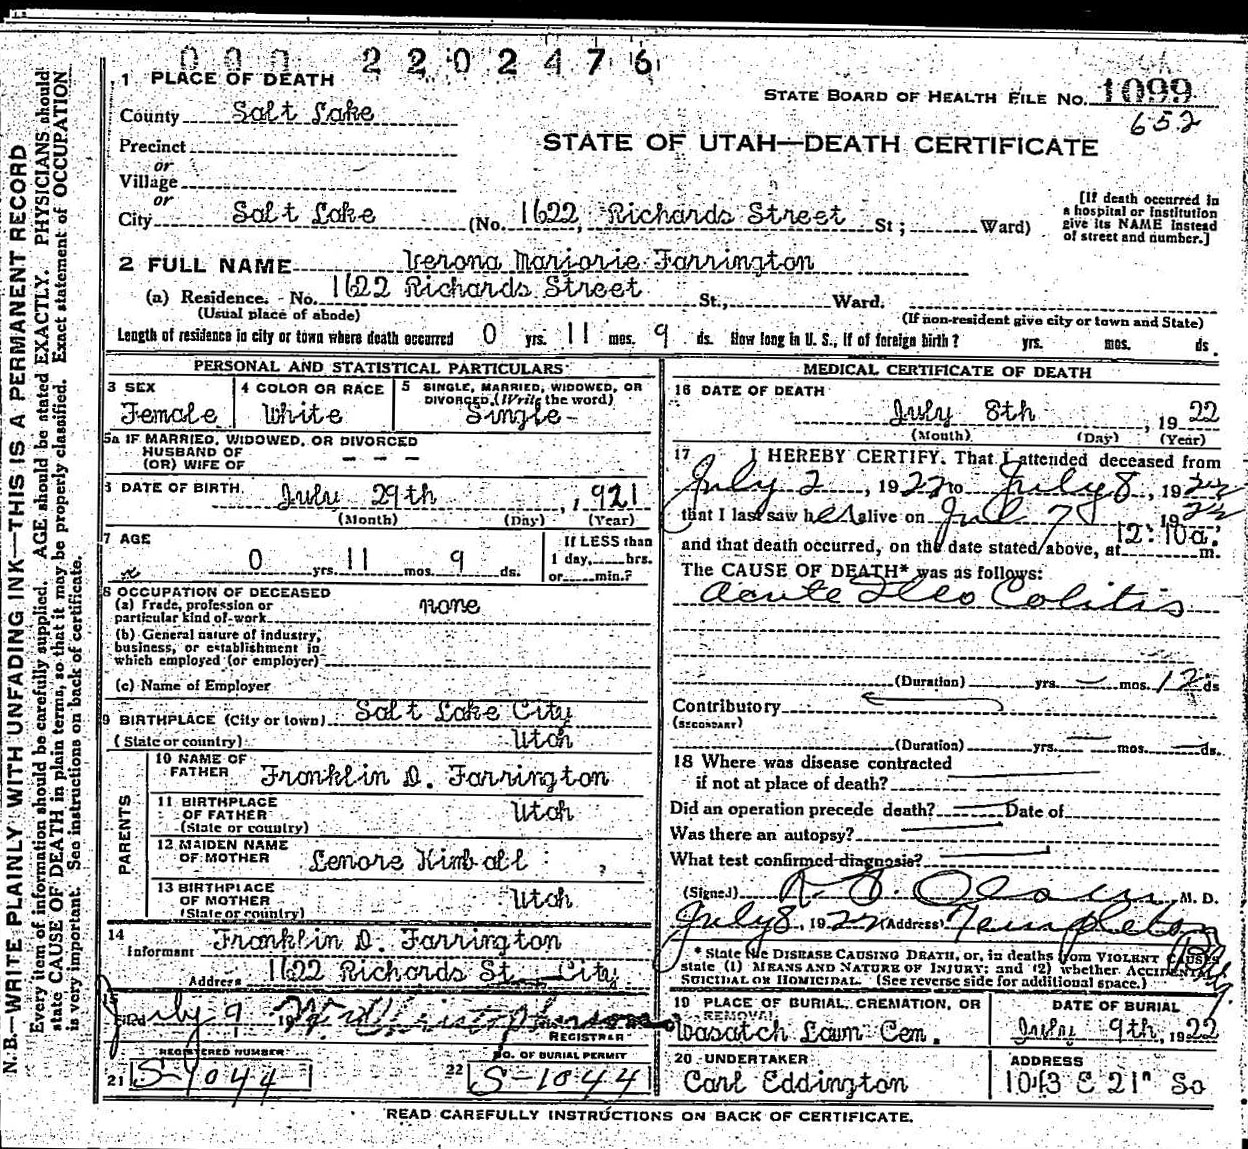 000 2202476
1 PLACE OF DEATH
STATE BOARD OF HEALTH FILE NO. 1099
652
County Salt Lake
STATE OF UTAH—DEATH CERTIFICATE
Precinct
or
Village
or
City Salt Lake (No. 1622, Richards Street St; Ward)
[If death occurred in a hospital or institution give its NAME instead of street and number.]
2 FULL NAME Verona Marjorie Farrington
(a) Residence. No. 1622 Richards Street St., Ward.
(Usual place of abode) (If non-resident give city or town and State)
Length of residence in city or town where death occurred 0 yrs. 11 mos. 9 ds. How long in U. S., if of foreign birth? yrs. mos. ds.
PERSONAL AND STATISTICAL PARTICULARS
3 SEX Female
4 COLOR OR RACE White
5 SINGLE, MARRIED, WIDOWED, OR DIVORCED, (Write the word) Single
5a IF MARRIED, WIDOWED, OR DIVORCED
HUSBAND OF
(OR) WIFE OF - - -
6 DATE OF BIRTH July 29th, 1921
(Month) (Day) (Year)
7 AGE 0 yrs. 11 mos. 9 ds.
If LESS than 1 day, hrs. or min.?
8 OCCUPATION OF DECEASED
(a) Trade, profession or particular kind of work none
(b) General nature of industry, business, or establishment in which employed (or employer)
(c) Name of Employer
9 BIRTHPLACE (City or town) Salt Lake City
(State or country) Utah
PARENTS
10 NAME OF FATHER Franklin D. Farrington
11 BIRTHPLACE OF FATHER (State or country) Utah
12 MAIDEN NAME OF MOTHER Lenore Kimball
13 BIRTHPLACE OF MOTHER (State or country) Utah
14 Informant Franklin D. Farrington
Address 1622 Richards St. City
15 Filed July 9
REGISTRAR
REGISTERED NUMBER
21 S-1044
NO. OF BURIAL PERMIT
22 S-1044
MEDICAL CERTIFICATE OF DEATH
16 DATE OF DEATH July 8th, 1922
(Month) (Day) (Year)
17 I HEREBY CERTIFY. That I attended deceased from
July 2, 1922 to July 8, 1922
that I last saw her alive on Jul 7 1922
and that death occurred, on the date stated above, at 12:10 a. m.
The CAUSE OF DEATH* was as follows:
Acute Ileo Colitis
(Duration) yrs. — mos. 12 ds
Contributory
(SECONDARY)
(Duration) yrs. — mos. — ds.
18 Where was disease contracted
if not at place of death?
Did an operation precede death? Date of
Was there an autopsy?
What test confirmed diagnosis?
(Signed) M. D.
July 8, 1922 (Address) Templeton Bldg.
* State the DISEASE CAUSING DEATH, or, in deaths from VIOLENT CAUSES
state (1) MEANS AND NATURE OF INJURY; and (2) whether ACCIDENTAL
SUICIDAL OR HOMICIDAL. (See reverse side for additional space.)
19 PLACE OF BURIAL, CREMATION, OR REMOVAL Wasatch Lawn Cem.
DATE OF BURIAL July 9th, 1922
20 UNDERTAKER Carl Eddington
ADDRESS 1043 E 21" So
READ CAREFULLY INSTRUCTIONS ON BACK OF CERTIFICATE.
N.B.—WRITE PLAINLY WITH UNFADING INK—THIS IS A PERMANENT RECORD
Every item of information should be carefully supplied. AGE should be stated EXACTLY. PHYSICIANS should
state CAUSE OF DEATH in plain terms, so that it may be properly classified. Exact statement of OCCUPATION
is very important. See instructions on back of certificate.